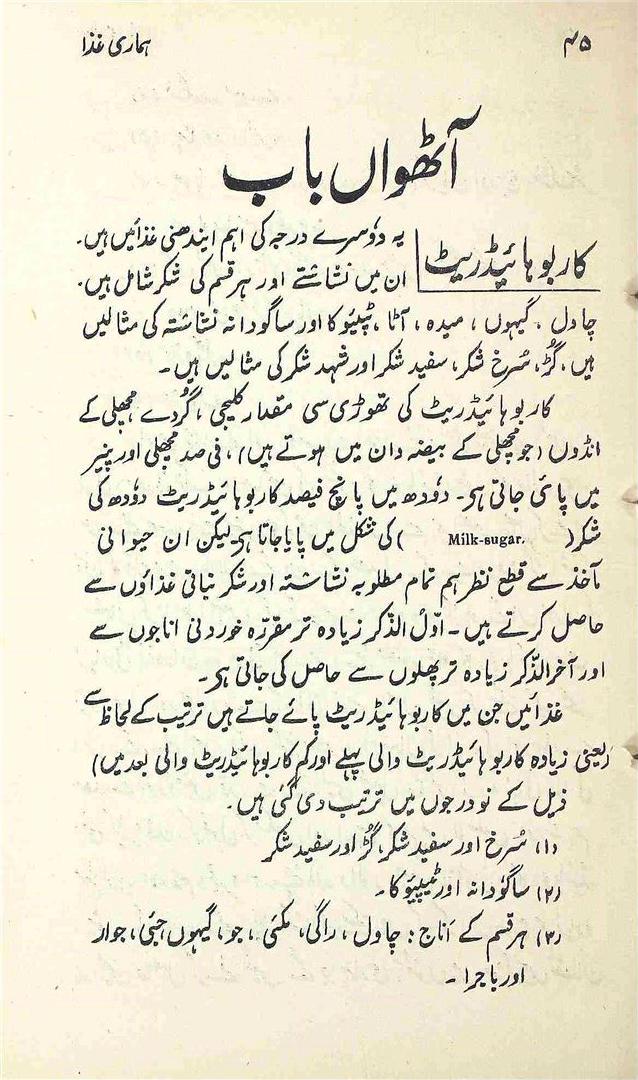 ۴۵ ہماری غذا
آٹھواں باب
کاربوہائیڈریٹ
یہ دوسرے درجہ کی اہم ایندھنی غذائیں ہیں۔
ان میں نشاشتے اور ہر قسم کی شکر شامل ہیں۔
چاول، گیہوں، میدہ، آٹا، ٹیپیوکا اور ساگودانہ نشاشتہ کی مثالیں
ہیں، گڑ، سُرخ شکر، سفید شکر اور شہد شکر کی مثالیں ہیں۔
کاربوہائیڈریٹ کی تھوڑی سی مقدار کلیجی، گُردے، مچھلی کے
انڈوں (جو مچھلی کے بیضہ دان میں ہوتے ہیں)، فی صد مچھلی اور پنیر
میں پائی جاتی ہر۔ دودھ میں پانچ فیصد کاربوہائیڈریٹ دودھ کی
شکر( Milk-sugar. )کی شکل میں پایا جاتا ہر۔ لیکن ان حیوانی
مآخذ سے قطع نظر ہم تمام مطلوبہ نشاشتہ اور شکر نباتی غذاؤں سے
حاصل کرتے ہیں۔ اوّل الذکر زیادہ تر مقررہ خوردنی اناجوں سے
اور آخر الذّکر زیادہ تر پھلوں سے حاصل کی جاتی ہر۔
غذائیں جن میں کاربوہائیڈریٹ پائے جاتے ہیں ترتیب کے لحاظ سے
(یعنی زیادہ کاربوہائیڈریٹ والی پہلے اور کم کاربوہائیڈریٹ والی بعد میں)
ذیل کے نو درجوں میں ترتیب دی گئی ہیں۔
(۱) سُرخ اور سفید شکر، گڑ اور سفید شکر
(۲) ساگودانہ اور ٹیپیوکا۔
(۳) ہر قسم کے اناج: چاول، راگی، مکئی، جو، گیہوں، جئی، جوار
اور باجرا۔